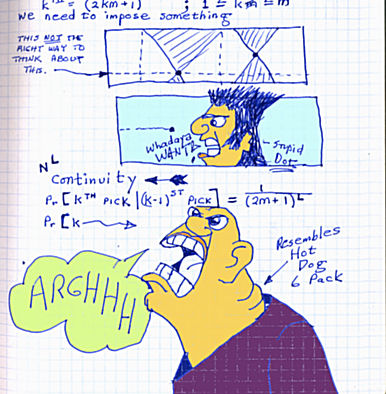 = (2km+1) ; 1 ≤ k ≤ m
we need to impose something
THIS NOT THE
RIGHT WAY TO
THINK ABOUT
THIS.
Whadaya
WANT?
Stupid
Dot
N^L
Continuity
Pr [k^TH PICK | (k-1)^ST PICK] = 1/(2m+1)^L
Pr [k
ARGHHH
Resembles
Hot
Dog
6 Pack